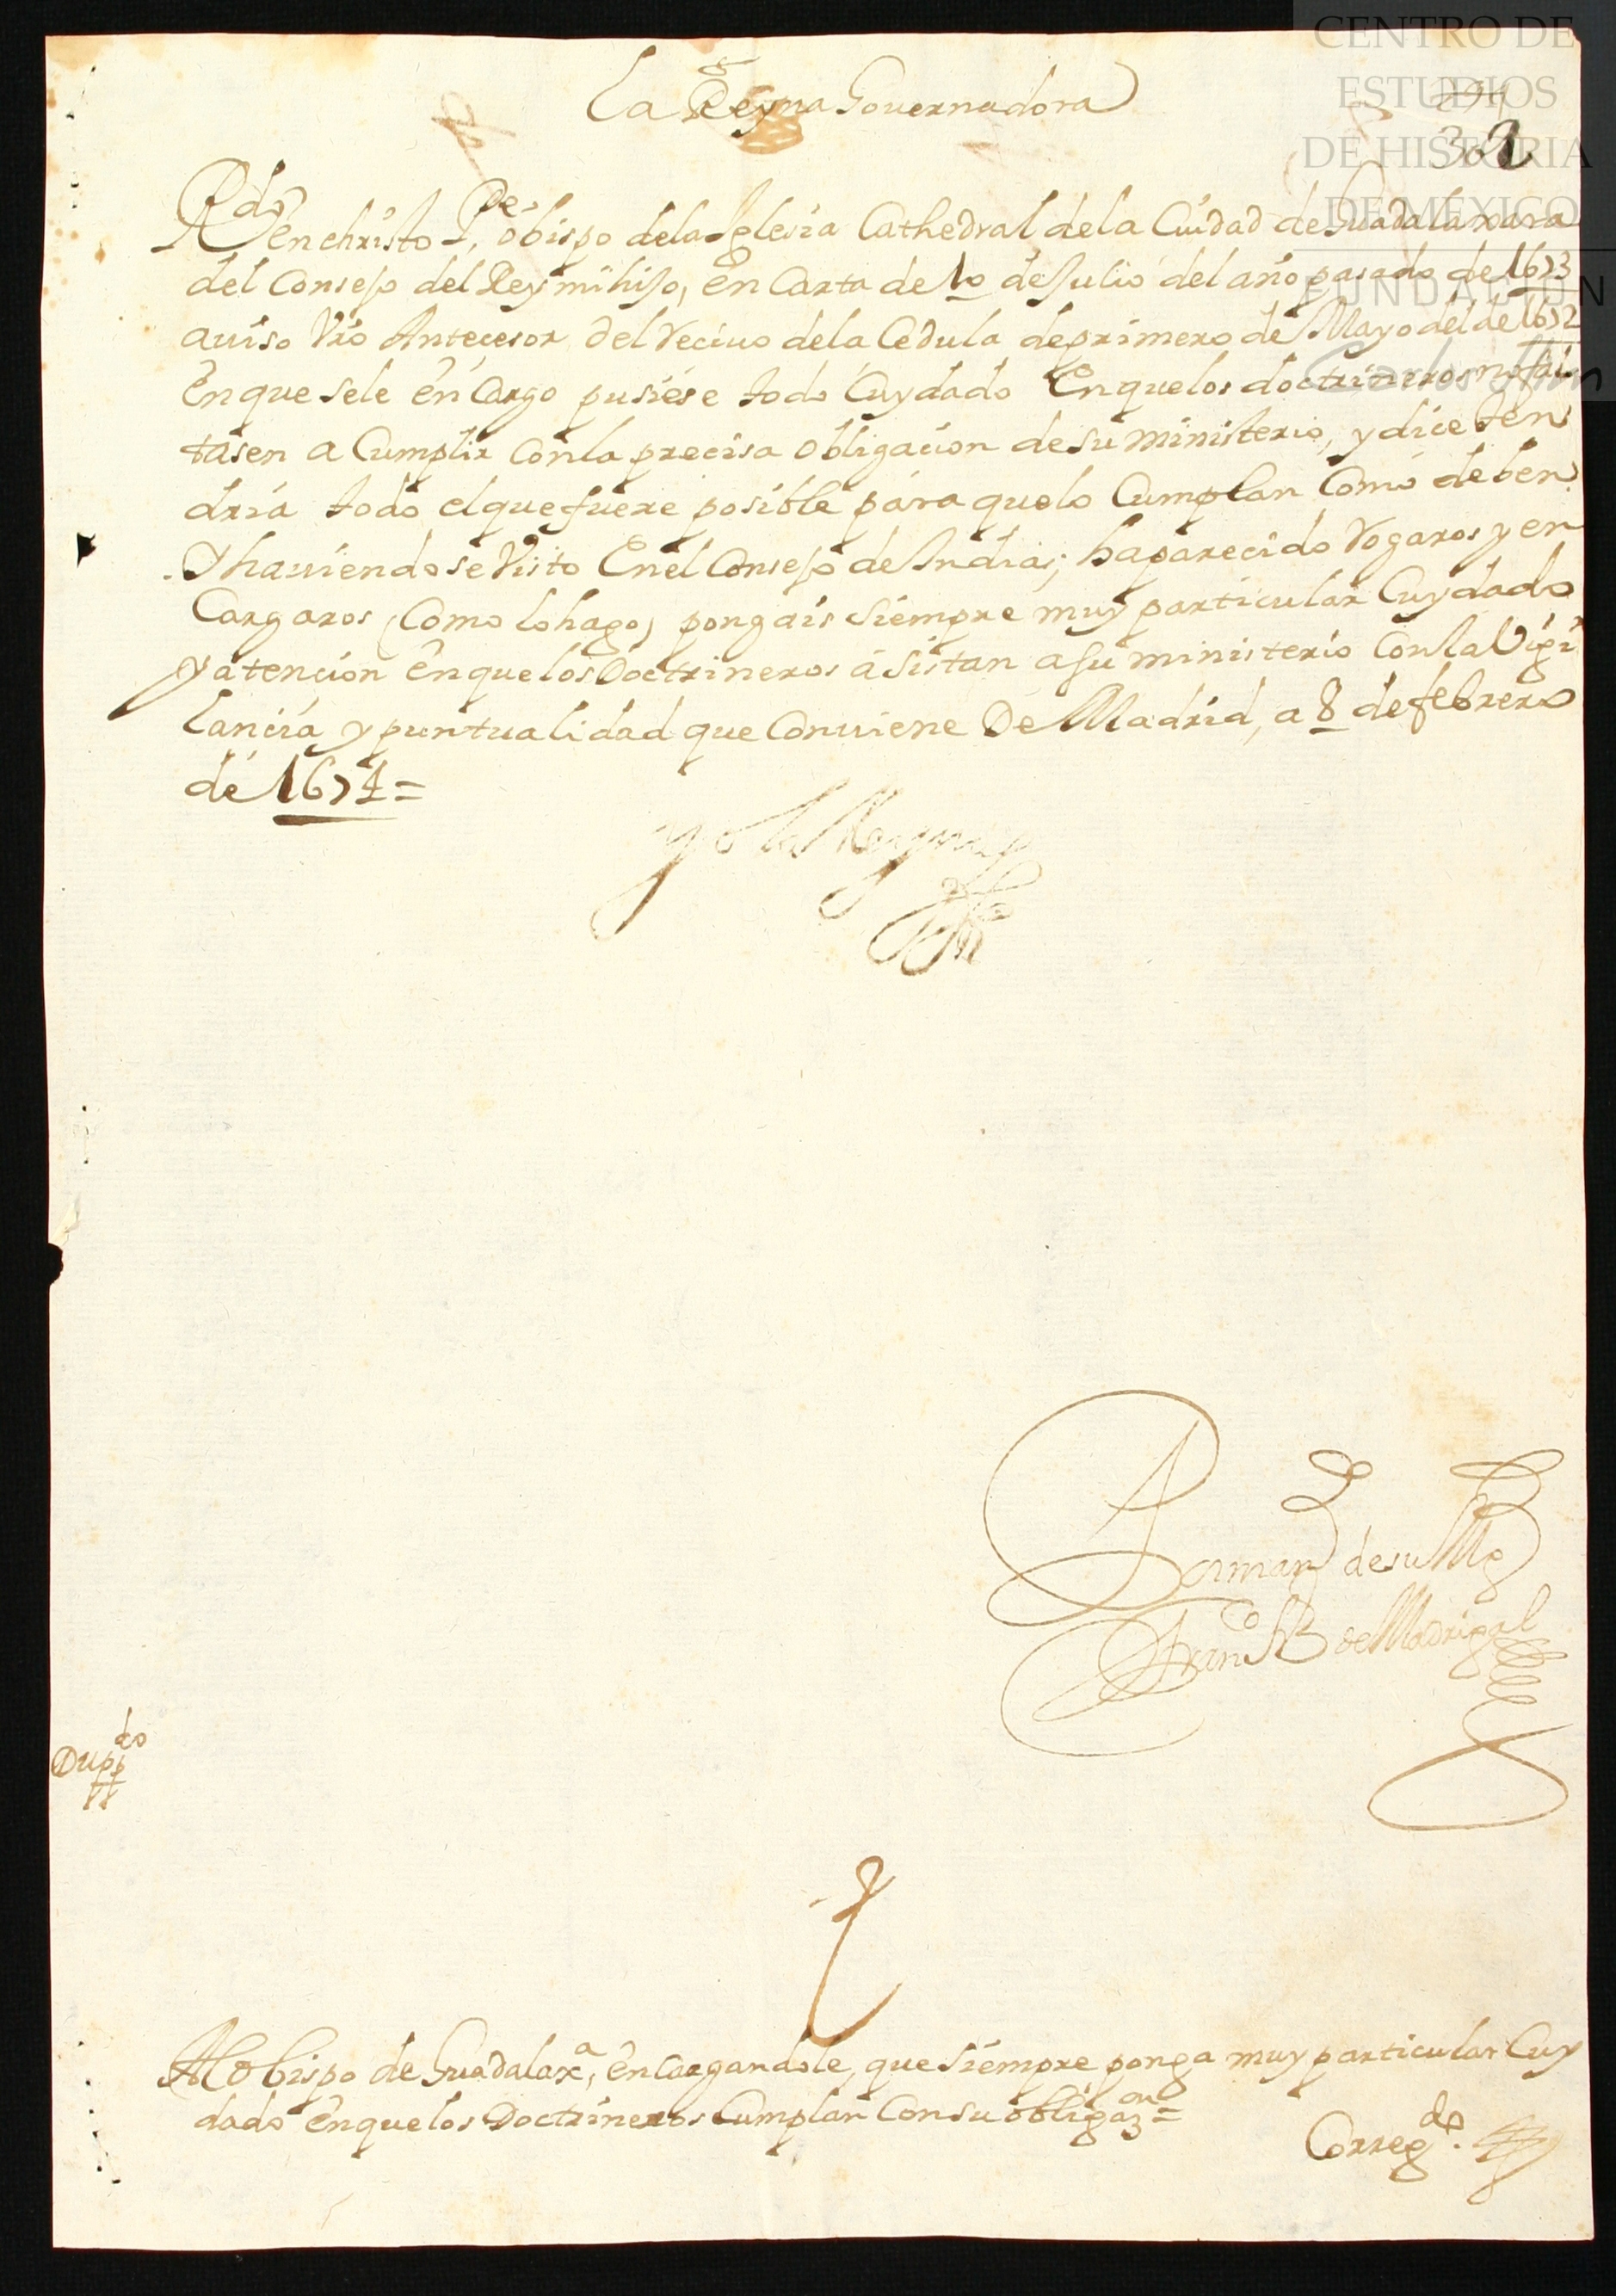 CENTRO DE
ESTUDIOS
DE HISTORIA
DE MÉXICO
FUNDACIÓN
Carlos Slim
La Reyna Governadora
Rdo en christo Pe, obispo dela Iglesia Cathedral dela Ciudad de Guadalaxara
del Consejo del Rey mi hijo, en Carta de 10 de Julio del año pasado de 1673
auiso Vro Antecesor del reciuo dela Cedula de primero de Mayo del de 1672
en que se le encargo pusiese todo Cuydado En que los doctrineros no fal
tasen a Cumplir con la precisa obligacion de su ministerio, y dice ten
dria todo el que fuere posible para que lo Cumplan Como deben.
Y hauiendose Visto En el Consejo de Indias; ha parecido rogaros y en
Cargaros (Como lo hago) pongais siempre muy particular Cuydado
y atencion en que los Doctrineros asistan a su ministerio Con la Vigi
lancia y puntualidad que Conuiene De Madrid, a 8 de febrero
de 1674=
Yo la Reyna
Por mandº de su Mg
Franco frz de Madrigal
Duppdo
Al obispo de Guadalaxa, encargandole, que siempre ponga muy particular Cuy
dado en que los Doctrineros Cumplan Con su obligazon=
Corregdo.